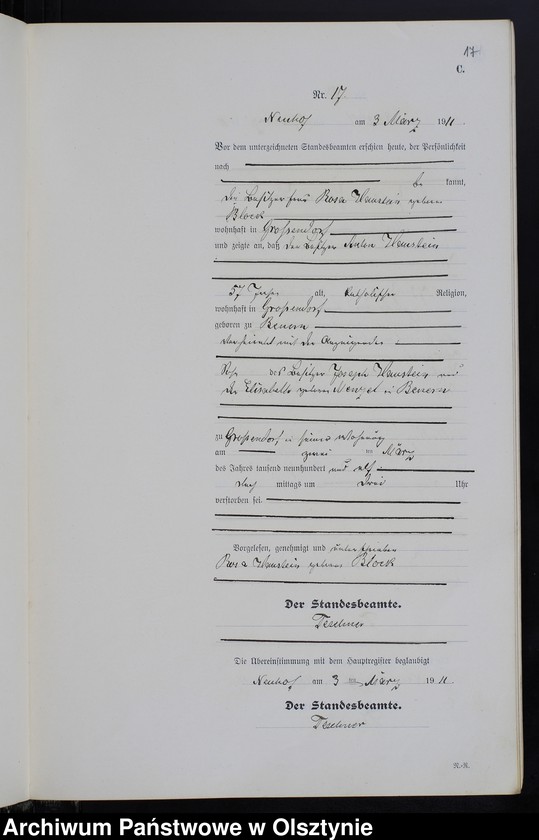 17
C.
Nr. 17.
Neuhof am 3 März 1911
Vor dem unterzeichneten Standesbeamten erschien heute, der Persönlichkeit
nach
be kannt,
die Besitzerfrau Rosa geborene
Block
wohnhaft in Großendorf
und zeigte an, daß der Besitzer Anton
57 Jahre alt, katholischer Religion,
wohnhaft in Großendorf
geboren zu Benern
verheiratet mit der Anzeigenden
Sohn des Besitzer Joseph und
der Elisabeth geborene Menzel in Benern
zu Großendorf in seiner Wohnung
am zwei ten März
des Jahres tausend neunhundert und elf
Nach mittags um drei Uhr
verstorben sei.
Vorgelesen, genehmigt und unterschrieben
Rosa geborene Block
Der Standesbeamte.
Teschner
Die Übereinstimmung mit dem Hauptregister beglaubigt
Neuhof am 3 März 1911
Der Standesbeamte.
Teschner
R.-R.
Archiwum Państwowe w Olsztynie